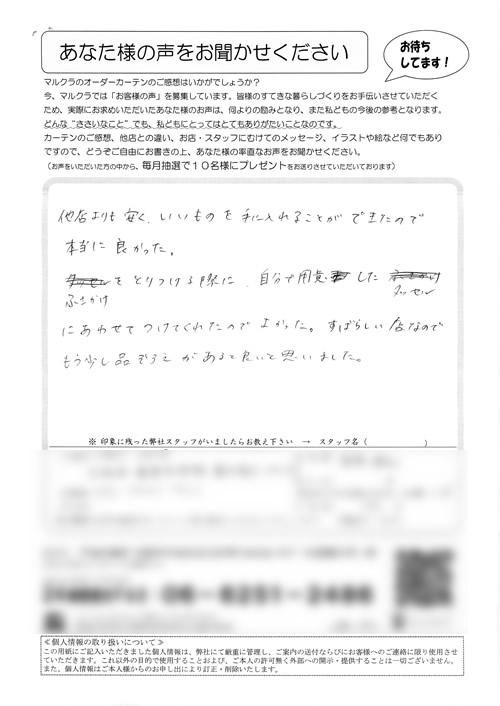 あなた様の声をお聞かせください
お待ち
してます！
マルクラのオーダーカーテンのご感想はいかがでしょうか？
今、マルクラでは「お客様の声」を募集しています。皆様のすてきな暮らしづくりをお手伝いさせていただく
ため、実際にお求めいただいたあなた様のお声は、何よりの励みとなり、また私どもの今後の参考となります。
どんな“ささいなこと”でも、私どもにとってはとてもありがたいことなのです。
カーテンのご感想、他店との違い、お店・スタッフにむけてのメッセージ、イラストや絵など何でもあり
ですので、どうぞご自由にお書きの上、あなた様の率直なお声をお聞かせください。
（お声をいただいた方の中から、毎月抽選で１０名様にプレゼントをお送りさせていただいております）
他店よりも安く、いいものを手に入れることができたので
本当に良かった。
をとりつける際に、自分で用意した
ふさかけ タッセル
にあわせてつけてくれたのでよかった。すばらしい店なので
もう少し品ぞろえがあると良いと思いました。
※ 印象に残った弊社スタッフがいましたらお教え下さい → スタッフ名（ ）
≪個人情報の取り扱いについて≫
この用紙にご記入いただきました個人情報は、弊社にて厳重に管理し、ご案内の送付ならびにお客様へのご連絡に限り使用させ
ていただきます。これ以外の目的で使用することおよび、ご本人の許可無く外部への開示・提供することは一切ございません。
また、個人情報はご本人様からのお申し出により訂正・削除いたします。